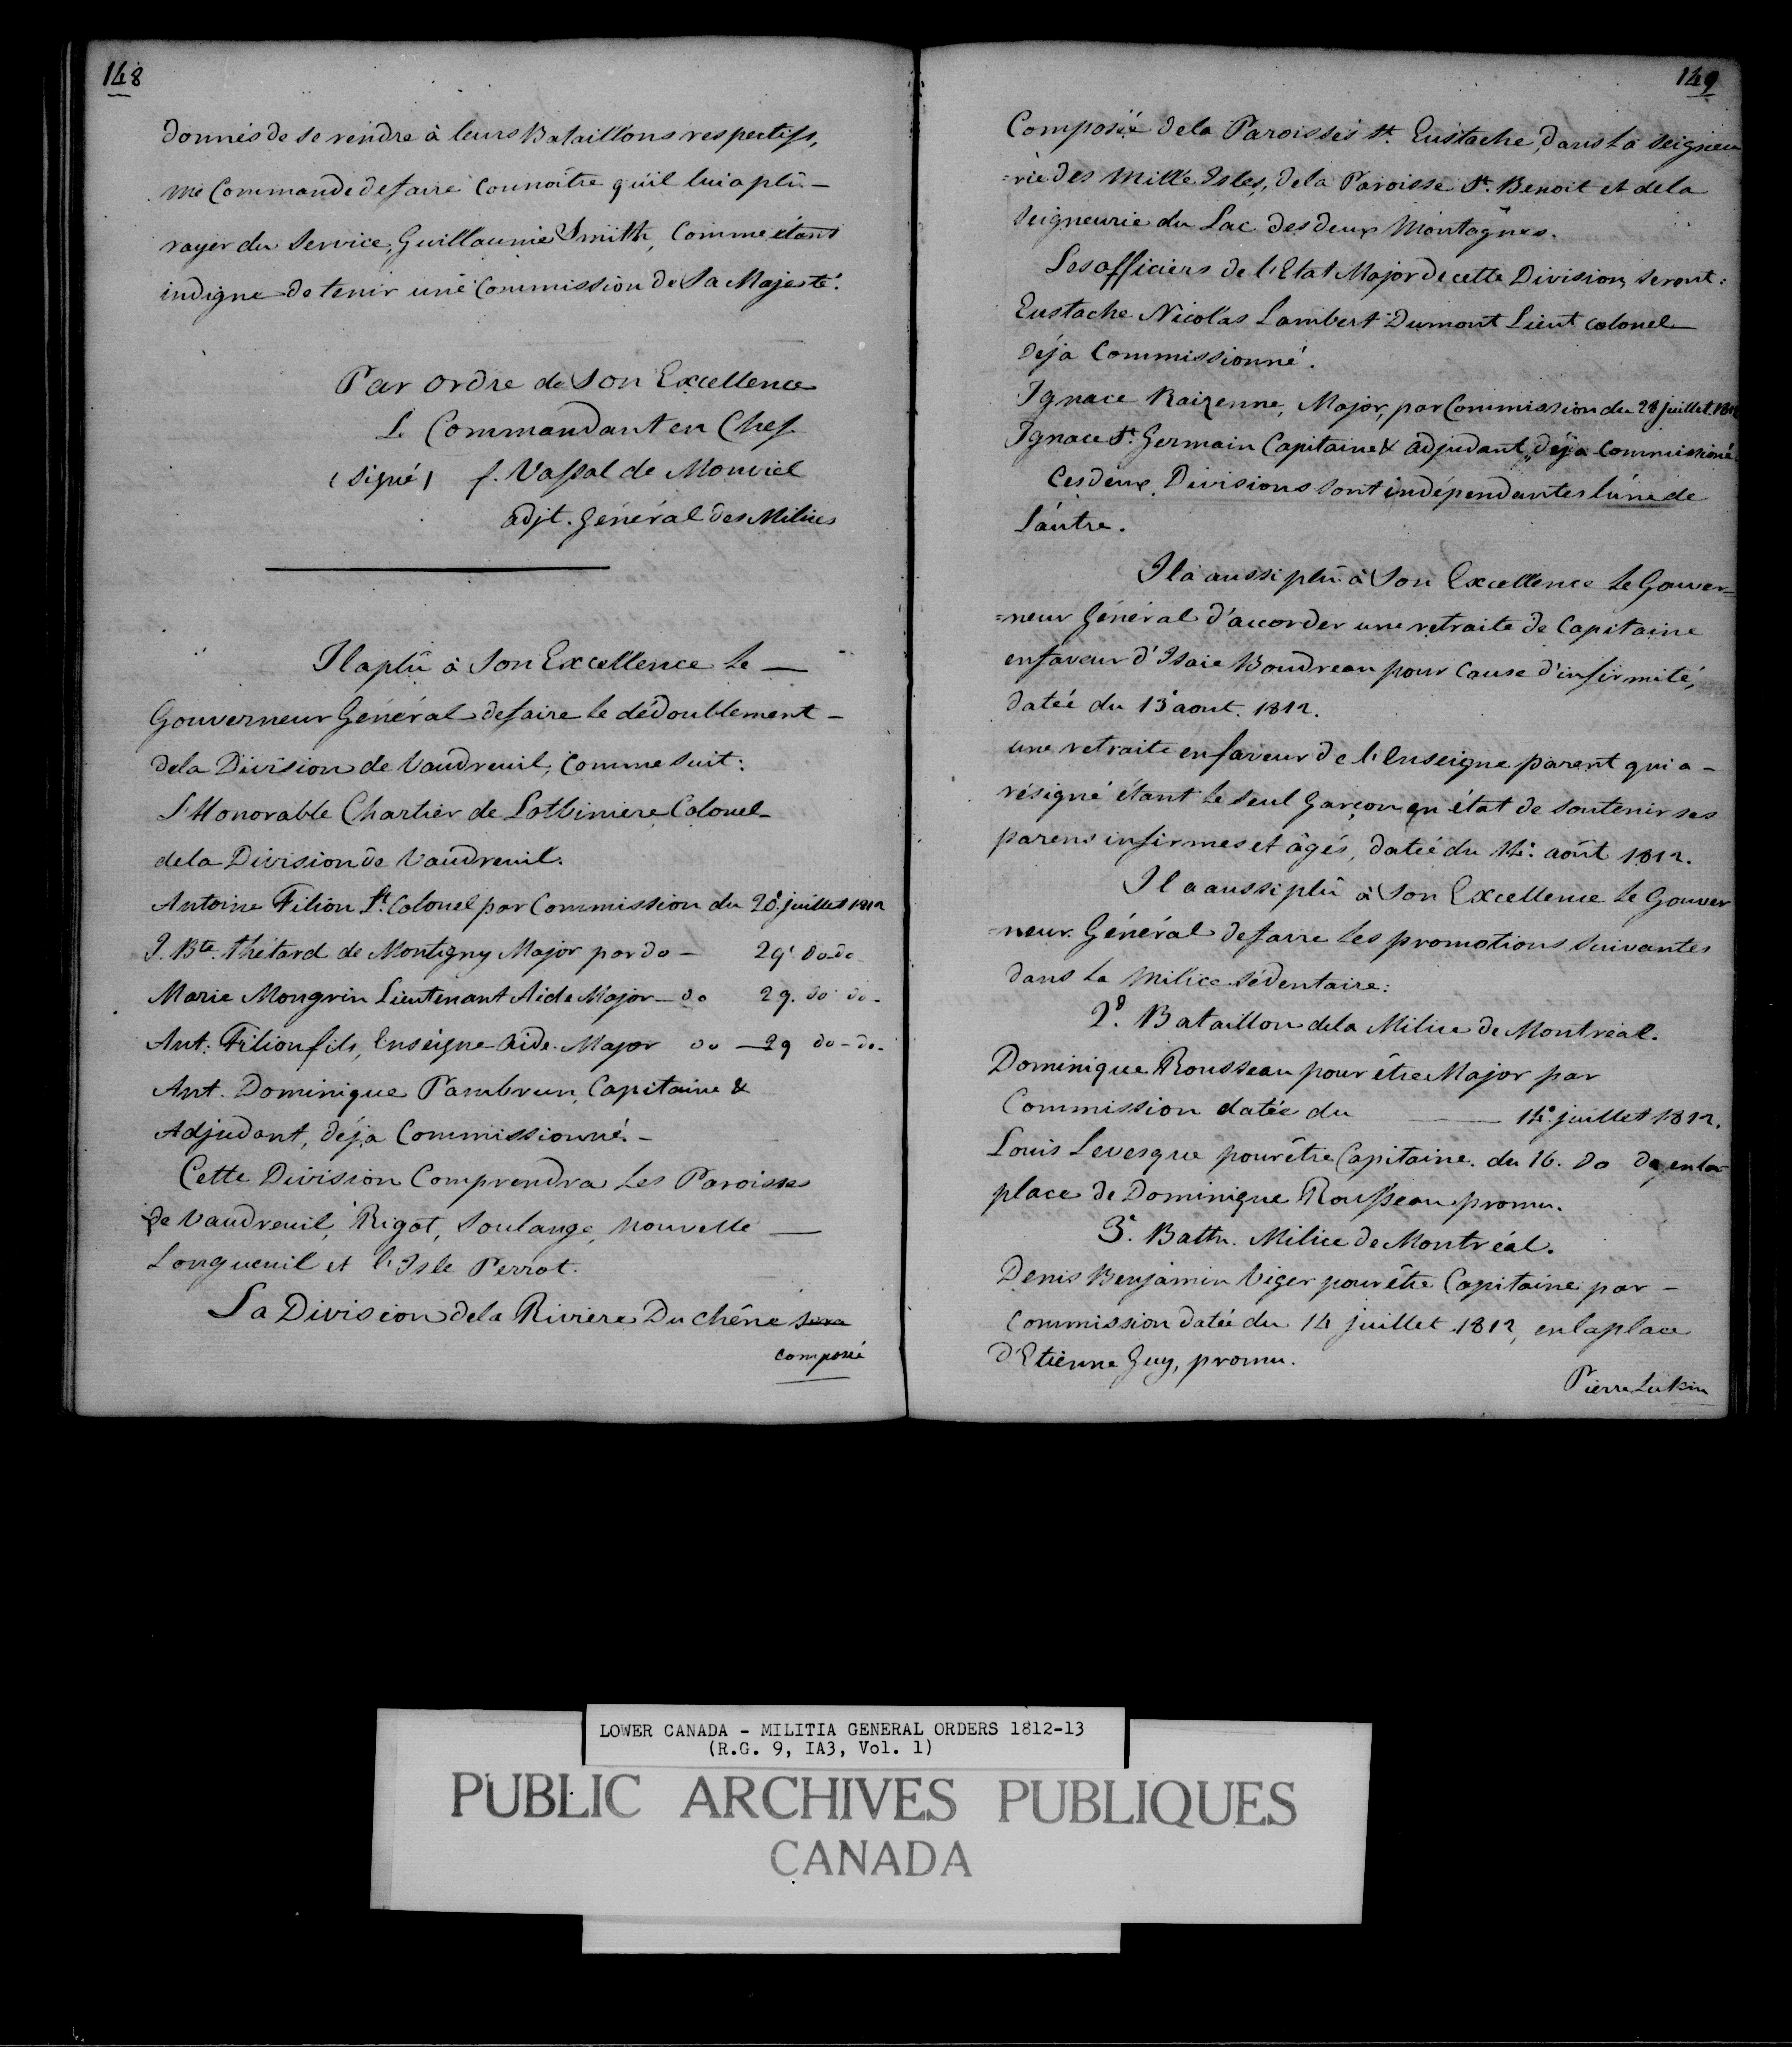 148
donnés de se rendre à leurs Bataillons respectifs,
me Commande de faire Connoître qu'il lui a plû –
rayer du Service, Guillaume Smith, Comme étant
indigne de tenir une Commission de Sa Majesté.
Par ordre de Son Excellence
Le Commandant en Chef
(signé) f. Vassal de Monviel
adjt. Général des Milices
Il a plû à Son Excellence Le —
Gouverneur Général de faire le dédoublement –
de la Division de Vaudreuil, Comme suit:
L'Honorable Chartier de Lotbiniere Colonel –
de la Division de Vaudreuil.
Antoine Filion Lt. Colonel par Commission du 28. juillet 1812
J. Bte. thétard de Montigny Major par do – 29. do do
Marie Mongrin Lieutenant Aide Major – do 29. do do –
Ant: Filion fils, Enseigne Aide-Major do — 29 do – do –
Ant. Dominique Pambrun, Capitaine &
Adjudant, déja Commissionné. –
Cette Division Comprendra Les Paroisses
de Vaudreuil, Rigot, Soulange, nouvelle —
Longueuil et l'Isle Perrot.
La Division de la Riviere Du chêne sera
composée
149
Composée de la Paroisses St. Eustache, dans La Seigneu
=rie des Mille Isles, de la Paroisse St. Benoit et de la
Seigneurie du Lac des deux Montagnes.
Les officiers de l'Etat Major de cette Division seront:
Eustache Nicolas Lambert Dumont Lieut colonel
déja Commissionné.
Ignace Raizenne, Major, par Commission du 28 juillet 1812
Ignace St. Germain Capitaine & adjudant, déja Commissioné
Ces deux Divisions sont indépendantes l'une de
l'autre.
Il a aussi plû à Son Excellence Le Gouver=
=neur Général d'accorder une retraite de Capitaine
en faveur d'Isaie Boudreau pour Cause d'infirmité,
datée du 13 aout. 1812.
une retraite en faveur de l'Enseigne parent qui a –
résigné étant le seul Garçon en état de soutenir ses
parens infirmes et âgés, datée du 14. août 1812.
Il a aussi plû à Son Excellence Le Gouver
=neur Général de faire les promotions suivantes
dans la Milice sédentaire:
2d. Bataillon de la Milice de Montréal.
Dominique Rousseau pour être Major par
Commission datée du — 14. juillet 1812.
Louis Levesque pour être Capitaine. du 16. do do en la
place de Dominique Rousseau promu.
3e. Battn. Milice de Montréal.
Denis Benjamin Viger pour être Capitaine par –
Commission datée du 14 juillet 1812, en la place
d'Etienne Guy, promu.
Pierre Lukin
LOWER CANADA - MILITIA GENERAL ORDERS 1812-13
(R.G. 9, IA3, Vol. 1)
PUBLIC ARCHIVES PUBLIQUES
CANADA